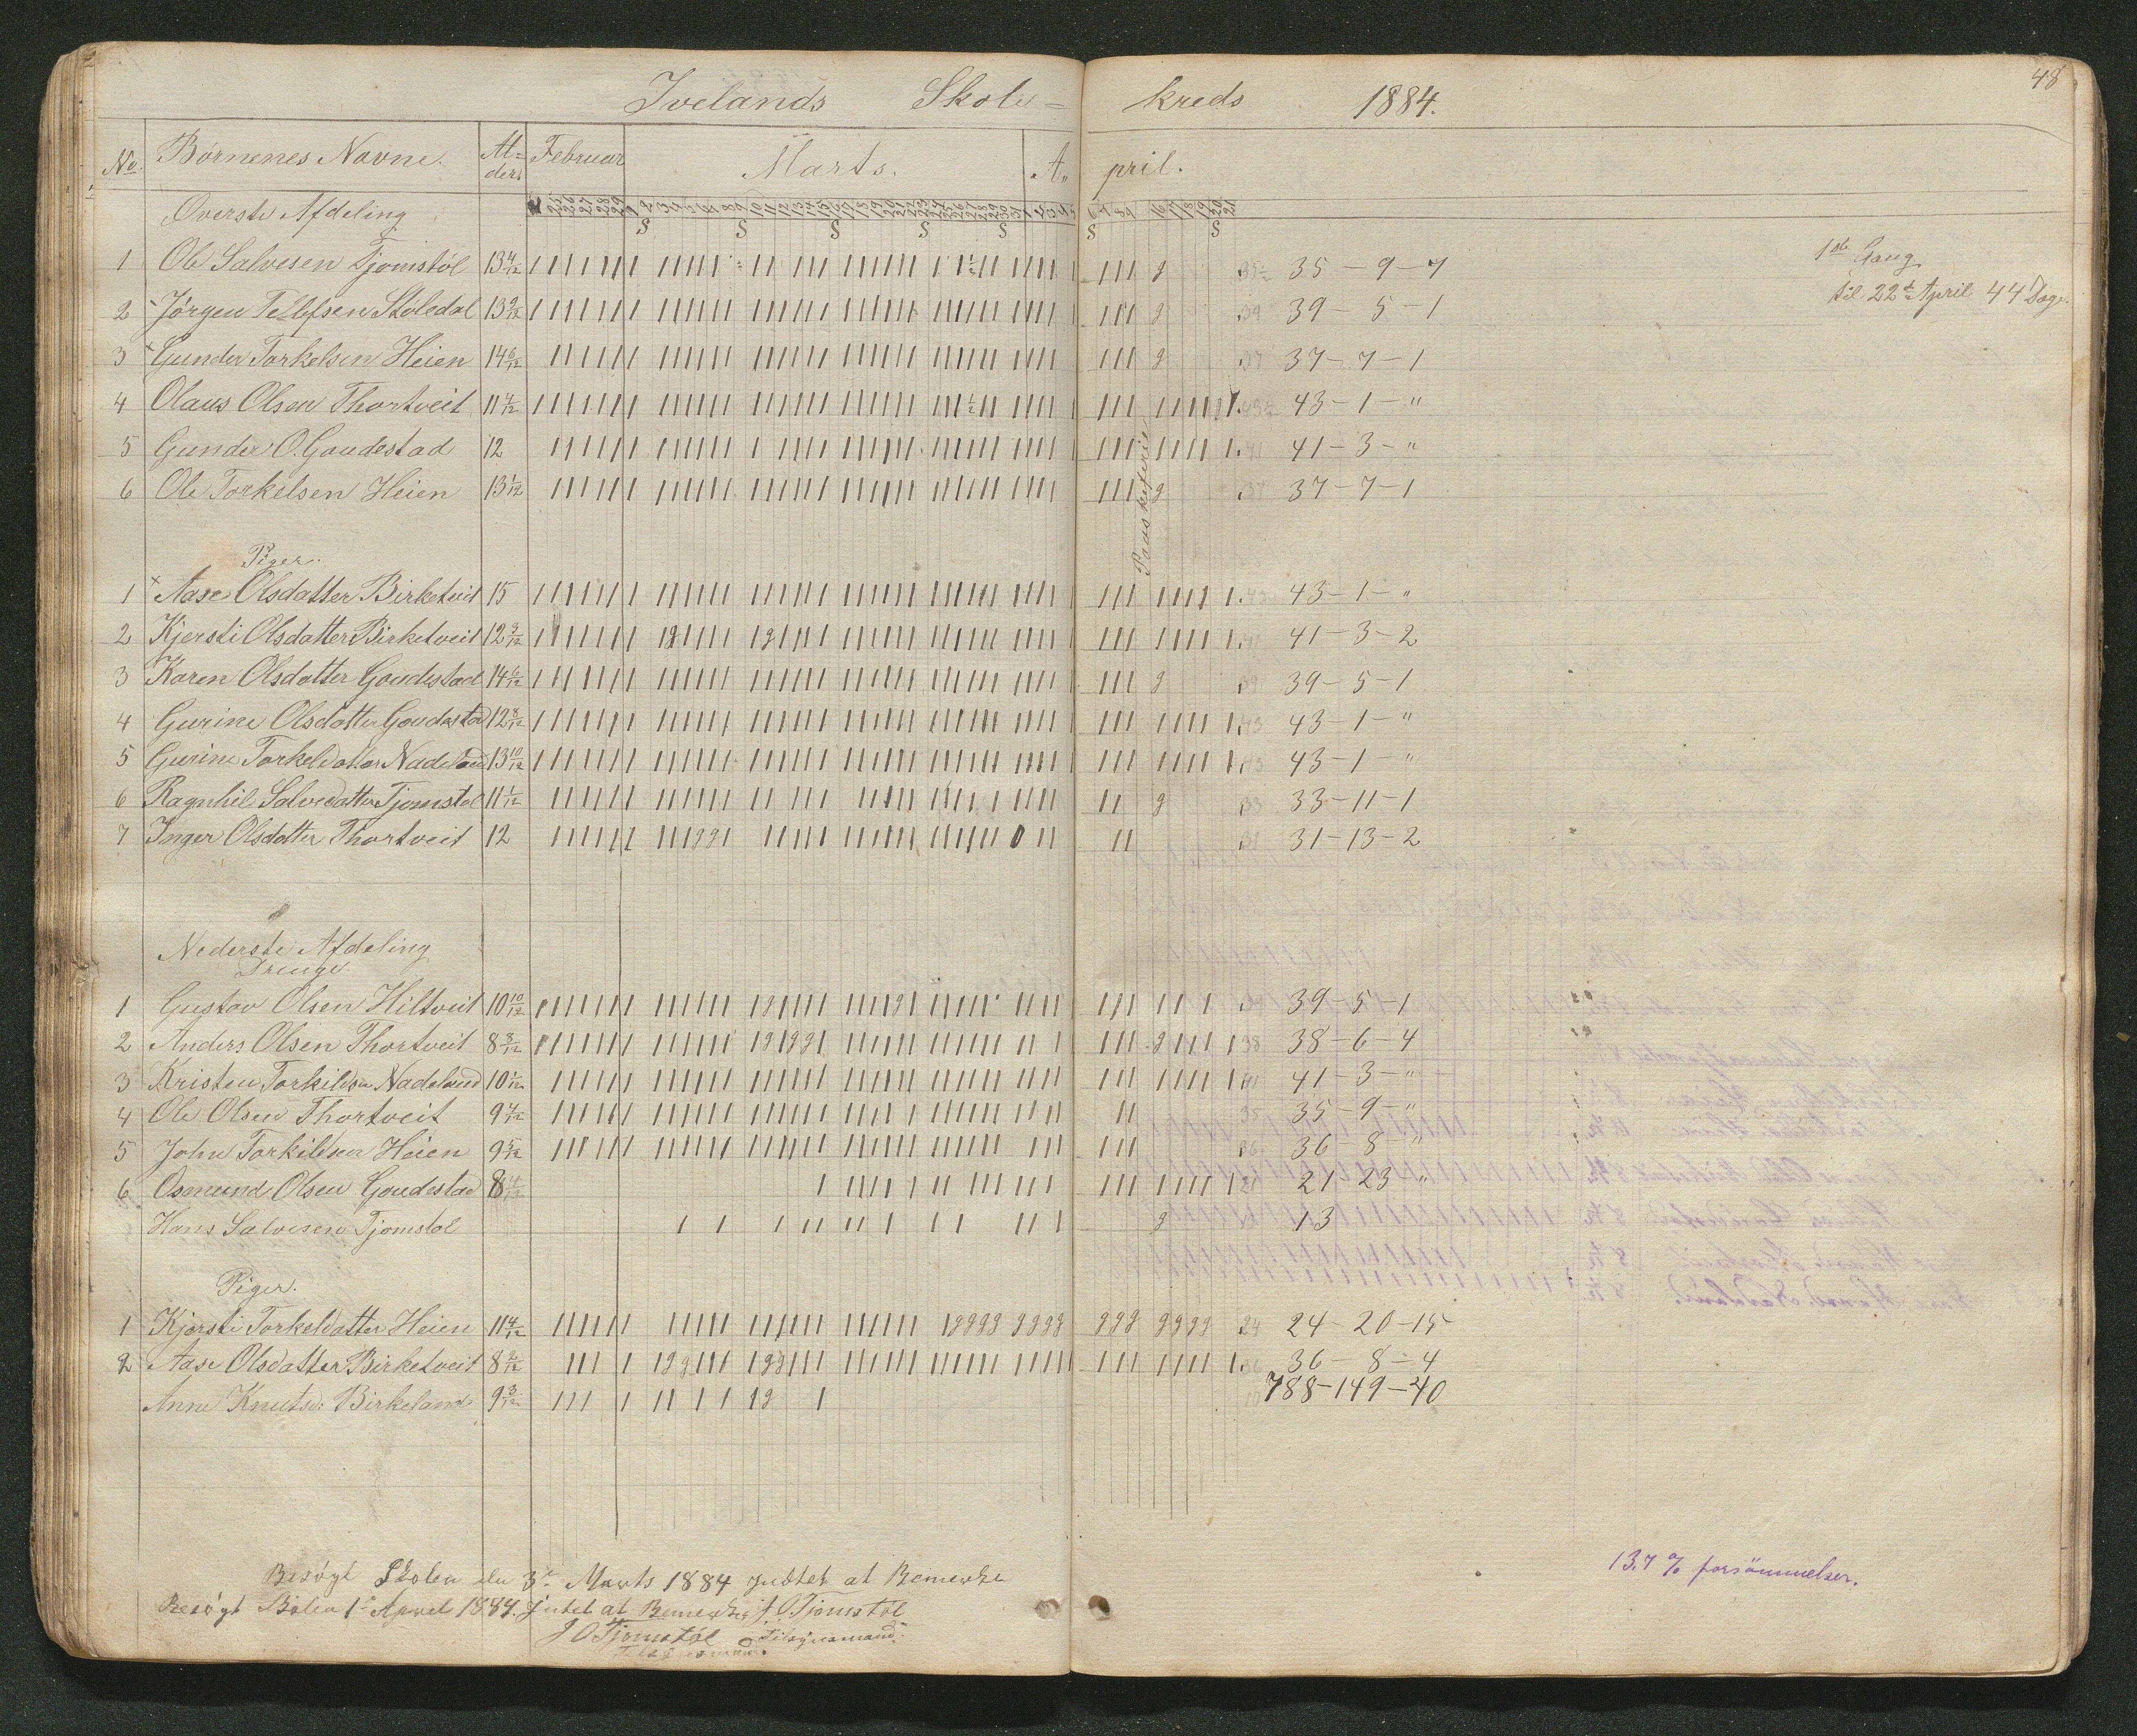 48
Ivelands Skole- kreds 1884.
No. Børnenes Navne. Al-ders Februar Marts. A- pril.
Øverste Afdeling
1 Ole Salvesen Tjomstøl 13 4/12 35-9-7
1ste Gang
til 22de April 44 Dage.
2 Jørgen Tellefsen Støledal 13 9/12 39-5-1
3 Gunder Torkelsen Heien 14 6/12 37-7-1
4 Olaus Olsen Thortveit 11 4/12 43-1-"
5 Gunder O. Goudestad 12 41-3-"
6 Ole Torkelsen Heien 13 1/12 37-7-1
Paaskeferie
Piger.
1 Aase Olsdatter Birketveit 15 43-1-"
2 Kjersti Olsdatter Birketveit 12 3/12 41-3-2
3 Karen Olsdatter Goudestad 14 6/12 39-5-1
4 Gurine Olsdatter Goudestad 12 8/12 43-1-"
5 Gurine Torkeldatter Nadeland 13 10/12 43-1-"
6 Ragnhil Salvedatter Tjomstøl 11 1/12 33-11-1
7 Inger Olsdatter Thortveit 12 31-13-2
Nederste Afdeling
Drenge
1 Gustav Olsen Hiltveit 10 10/12 39-5-1
2 Anders Olsen Thortveit 8 3/12 38-6-4
3 Kristen Torkildsen Nadeland 10 1/12 41-3-"
4 Ole Olsen Thortveit 9 4/12 35-9-"
5 John Torkildsen Heien 9 5/12 36-8-"
6 Osmund Olsen Goudestad 8 4/12 21-23-"
Hans Salvesen Tjomstøl 13
Piger.
1 Kjersti Torkeldatter Heien 11 4/12 24-20-15
2 Aase Olsdatter Birketveit 8 2/12 36-8-4
Anne Knutsd: Birkeland 9 3/12 788-149-40
13,7 % forsömmelser.
Besøgt Skolen den 3de Marts 1884 Intet at Bemerke
Besøgt Skolen 1ste April 1884. Intet at Bemerke J. O. Tjomstøl
J O Tjomstøl Tilsynsmand.
Tilsynsmand.